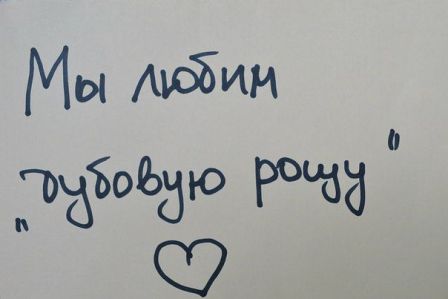 Мы любим
„дубовую рощу"